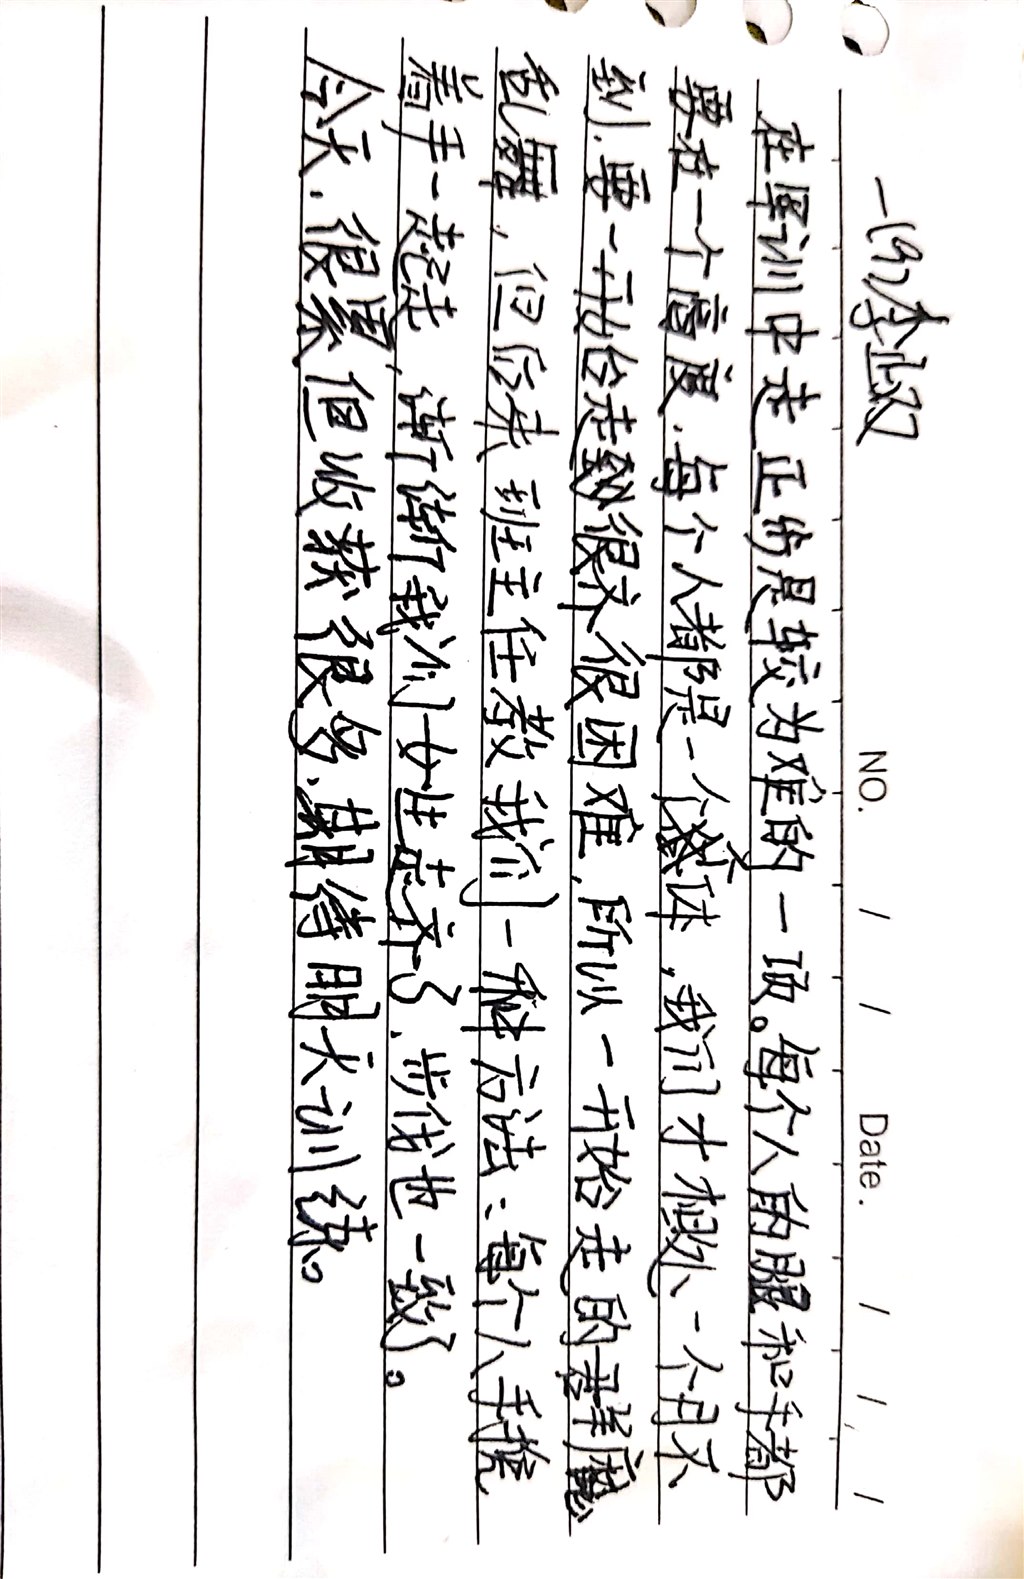 一(9)李业双
NO.
Date.
在军训中走正步是较为难的一项。每个人的腿和手都
要在一个高度.每个人都是一个整体,我们才相处一个月不
到.要一开始走到很齐很困难,所以一开始走的群魔
乱舞,但后来班主任教我们一种方法:每个人手挽
着手一起走,渐渐我们女生走齐了.步伐也一致了。
今天.很累,但收获很多.期待明天训练。